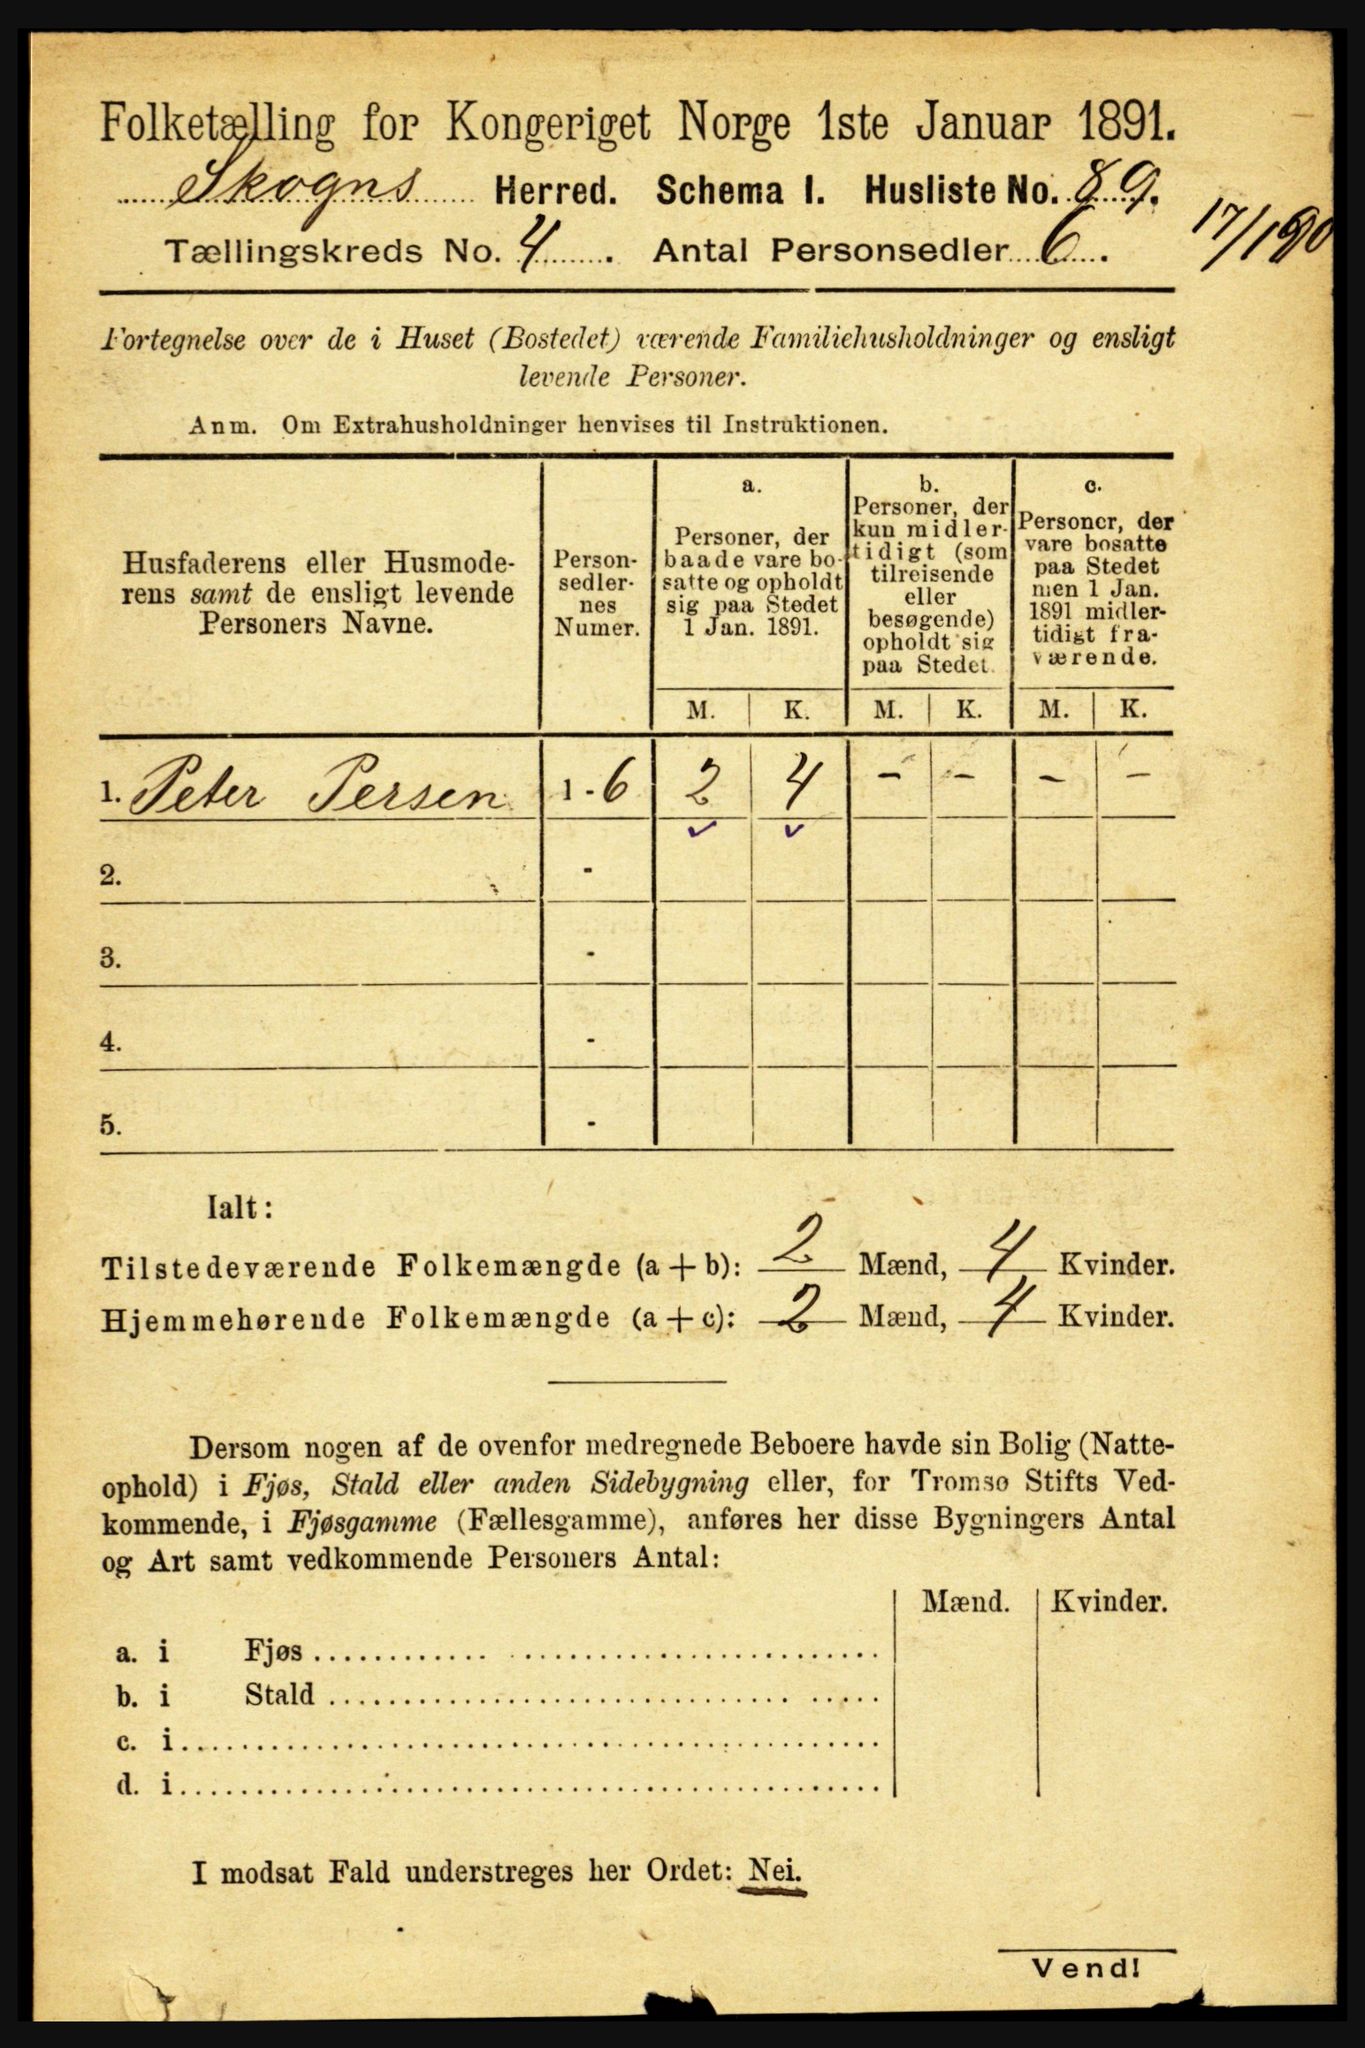 Folketælling for Kongeriget Norge 1ste Januar 1891.
Skogns Herred. Schema I. Husliste No. 89.
Tællingskreds No. 4. Antal Personsedler 6.
Fortegnelse over de i Huset (Bostedet) værende Familiehusholdninger og ensligt
levende Personer.
Anm. Om Extrahusholdninger henvises til Instruktionen.
Husfaderens eller Husmode-
rens samt de ensligt levende
Personers Navne.
Person-
sedler-
nes
Numer.
a.
Personer, der
baade vare bo-
satte og opholdt
sig paa Stedet
1 Jan. 1891.
b.
Personer, der
kun midler-
tidigt (som
tilreisende
eller
besøgende)
opholdt sig
paa Stedet.
c.
Personer, der
vare bosatte
paa Stedet
men 1 Jan.
1891 midler-
tidigt fra-
værende.
M. K. M. K. M. K.
1. Peter Persen 1 - 6 2 4 - - - -
2. -
3. -
4. -
5. -
Ialt:
Tilstedeværende Folkemængde (a + b): 2 Mænd, 4 Kvinder.
Hjemmehørende Folkemængde (a + c): 2 Mænd, 4 Kvinder.
Dersom nogen af de ovenfor medregnede Beboere havde sin Bolig (Natte-
ophold) i Fjøs, Stald eller anden Sidebygning eller, for Tromsø Stifts Ved-
kommende, i Fjøsgamme (Fællesgamme), anføres her disse Bygningers Antal
og Art samt vedkommende Personers Antal:
Mænd. Kvinder.
a. i Fjøs
b. i Stald
c. i
d. i
I modsat Fald understreges her Ordet: Nei.
Vend!